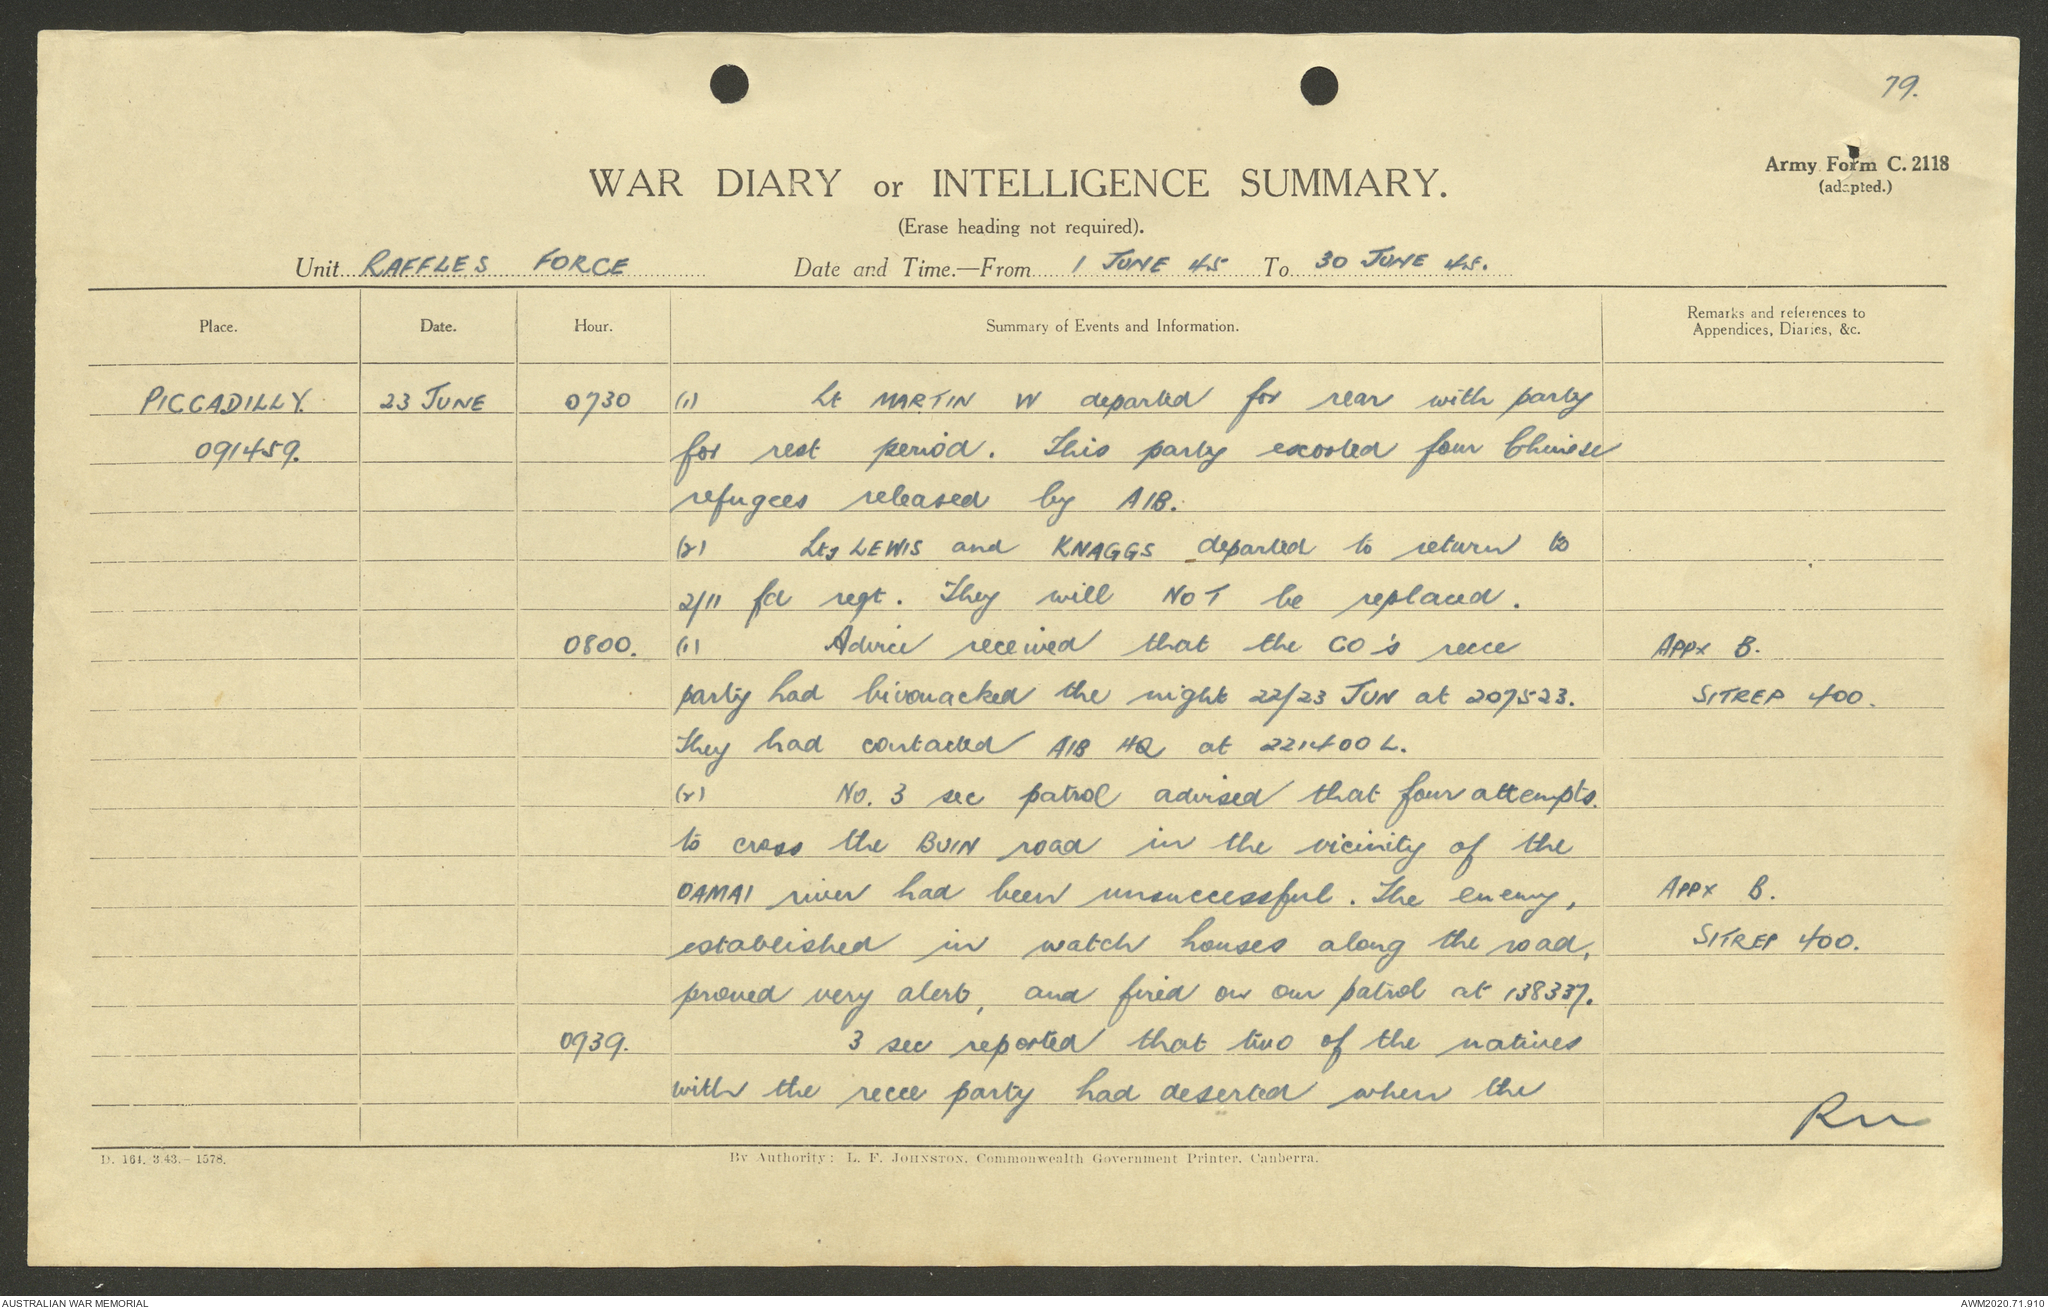 79.
Army Form C. 2118
(adapted.)
WAR DIARY or INTELLIGENCE SUMMARY.
(Erase heading not required).
Unit RAFFLES FORCE Date and Time.—From 1 JUNE 45 To 30 JUNE 45.
Place. Date. Hour. Summary of Events and Information. Remarks and references to Appendices, Diaries, &c.
PICCADILLY. 23 JUNE 0730 (1) Lt MARTIN W departed for rear with party
091459. for rest period. This party escorted four Chinese
refugees released by AIB.
(2) Lts LEWIS and KNAGGS departed to return to
2/11 fd regt. They will NOT be replaced.
0800. (1) Advice received that the CO's recce APPX B.
party had bivouacked the night 22/23 JUN at 207523. SITREP 400.
They had contacted AIB HQ at 221400L.
(2) No. 3 sec patrol advised that four attempts
to cross the BUIN road in the vicinity of the
OAMAI river had been unsuccessful. The enemy, APPX B.
established in watch houses along the road, SITREP 400.
proved very alert, and fired on our patrol at 138337.
0939. 3 sec reported that two of the natives
with the recce party had deserted when the
D. 164. 3.43.—1578. By Authority: L. F. JOHNSTON, Commonwealth Government Printer, Canberra.
AUSTRALIAN WAR MEMORIAL AWM2020.71.910